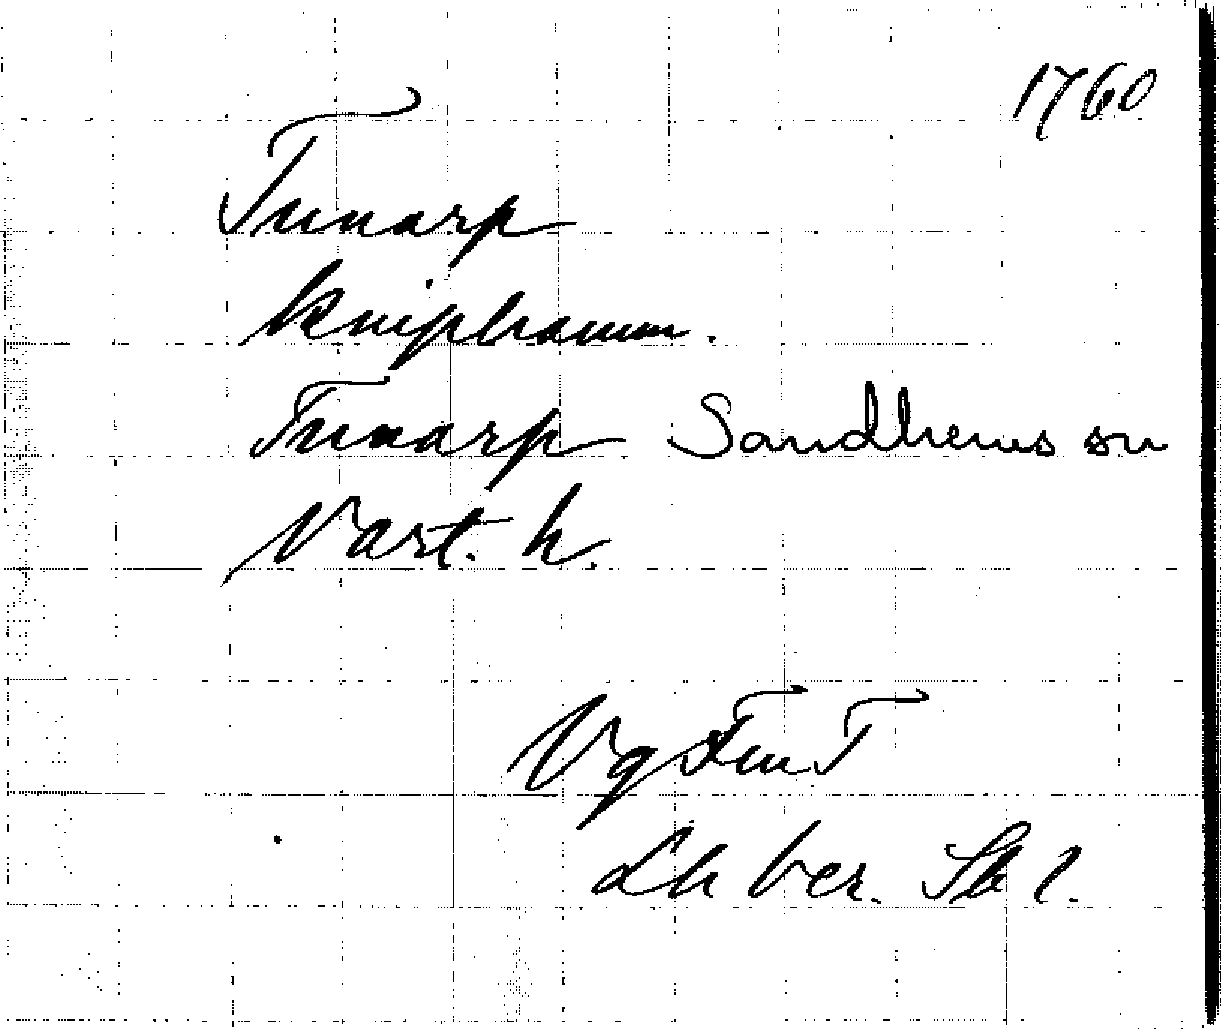 1760
Tunarp
kniphamm.
Tunarp Sandhems sn
Vart. h.
Vg FmT
Lh ber. Sb 1.